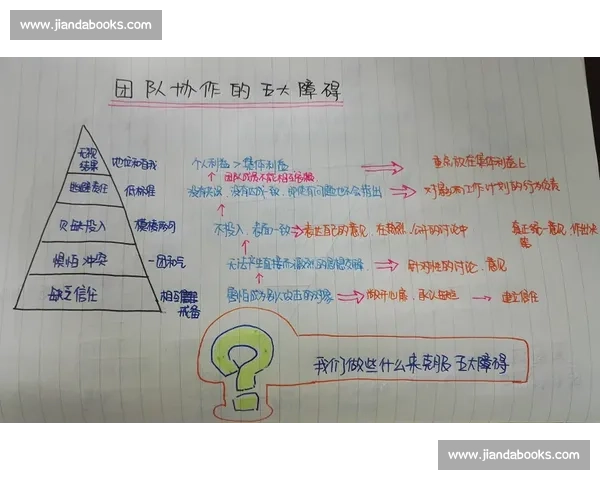 www.jiandabooks.com
团队协作的五大障碍
无视结果 地位和自我 个人利益>集体利益 重点放在集体利益上
团队成员不能相互
逃避责任 低标准 没有失误、没有达成一致,即使有问题也不会指出 对影响工作计划的行为负责
欠缺投入 模棱两可 不投入,表面一致 表达自己的意见,在激烈、公开的讨论中 真正统一意见,作出决策
惧怕冲突 一团和气 无法产生直接而激烈的思想交锋 针对性的讨论、意见
缺乏信任 相互戒备 害怕成为别人攻击的对象 敞开心扉,承认 建立信任
?
我们做些什么来克服五大障碍
www.jiandabooks.com